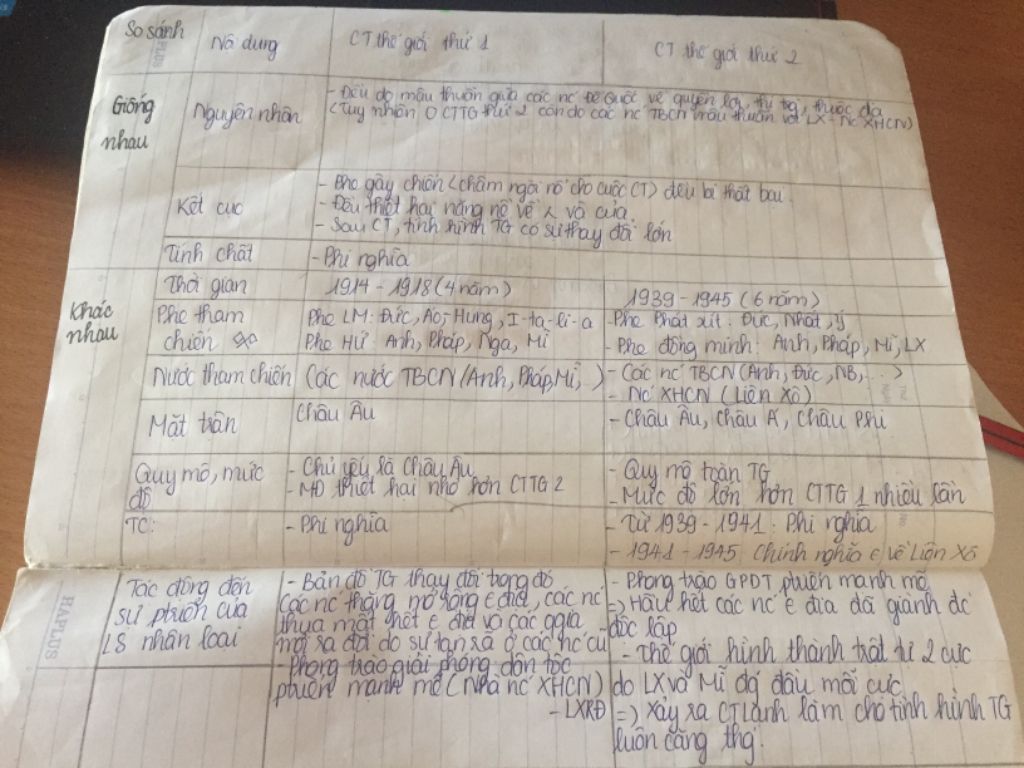 So sánh
Nội dung
CT thế giới thứ 1
CT thế giới thứ 2
Giống
nhau
Nguyên nhân
- Đều do mâu thuẫn giữa các nc Đế Quốc về quyền lợi, thị tg, thuộc địa
(Tuy nhiên ở CTTG thứ 2 còn do các nc TBCN mâu thuẫn với LX - Nc XHCN)
Kết cục
- Phe gây chiến (châm ngòi nổ cho cuộc CT) đều bị thất bại
- Đều thiệt hại nặng nề về λ và của
- Sau CT, tình hình TG có sự thay đổi lớn
Tính chất
- Phi nghĩa
Khác
nhau
Thời gian
1914 - 1918 (4 năm)
1939 - 1945 (6 năm)
Phe tham
chiến
Phe LM: Đức, Áo-Hung, I-ta-li-a
Phe HƯ: Anh, Pháp, Nga, Mĩ
- Phe Phát xít: Đức, Nhật, Ý
- Phe đồng minh: Anh, Pháp, Mĩ, LX
Nước tham chiến
Các nước TBCN (Anh, Pháp, Mĩ, ..)
- Các nc TBCN (Anh, Đức, NB, ...)
- Nc XHCN (Liên Xô)
Mặt trận
Châu Âu
- Châu Âu, Châu Á, Châu Phi
Quy mô, mức
độ
- Chủ yếu là Châu Âu
- MĐ thiệt hại nhỏ hơn CTTG 2
- Quy mô toàn TG
- Mức độ lớn hơn CTTG 1 nhiều lần
TC:
- Phi nghĩa
- Từ 1939 - 1941: Phi nghĩa
- 1941 - 1945: Chính nghĩa € về Liên Xô
Tác động đến
sự ptriển của
LS nhân loại
- Bản đồ TG thay đổi trong đó
các nc thắng mở rộng € địa, các nc
thua mất hết € địa và các qgia
mới ra đời do sự tan rã ở các nc cũ
- Phong trào giải phóng dân tộc
ptriển mạnh mẽ (Nhà nc XHCN)
- LXRĐ
- Phong trào GPDT ptriển mạnh mẽ
=> Hầu hết các nc € địa đã giành đc
độc lập
- Thế giới hình thành trật tự 2 cực
do LX và Mĩ đứng đầu mỗi cực
=> Xảy ra CT lạnh làm cho tình hình TG
luôn căng thg.
HAPLUS